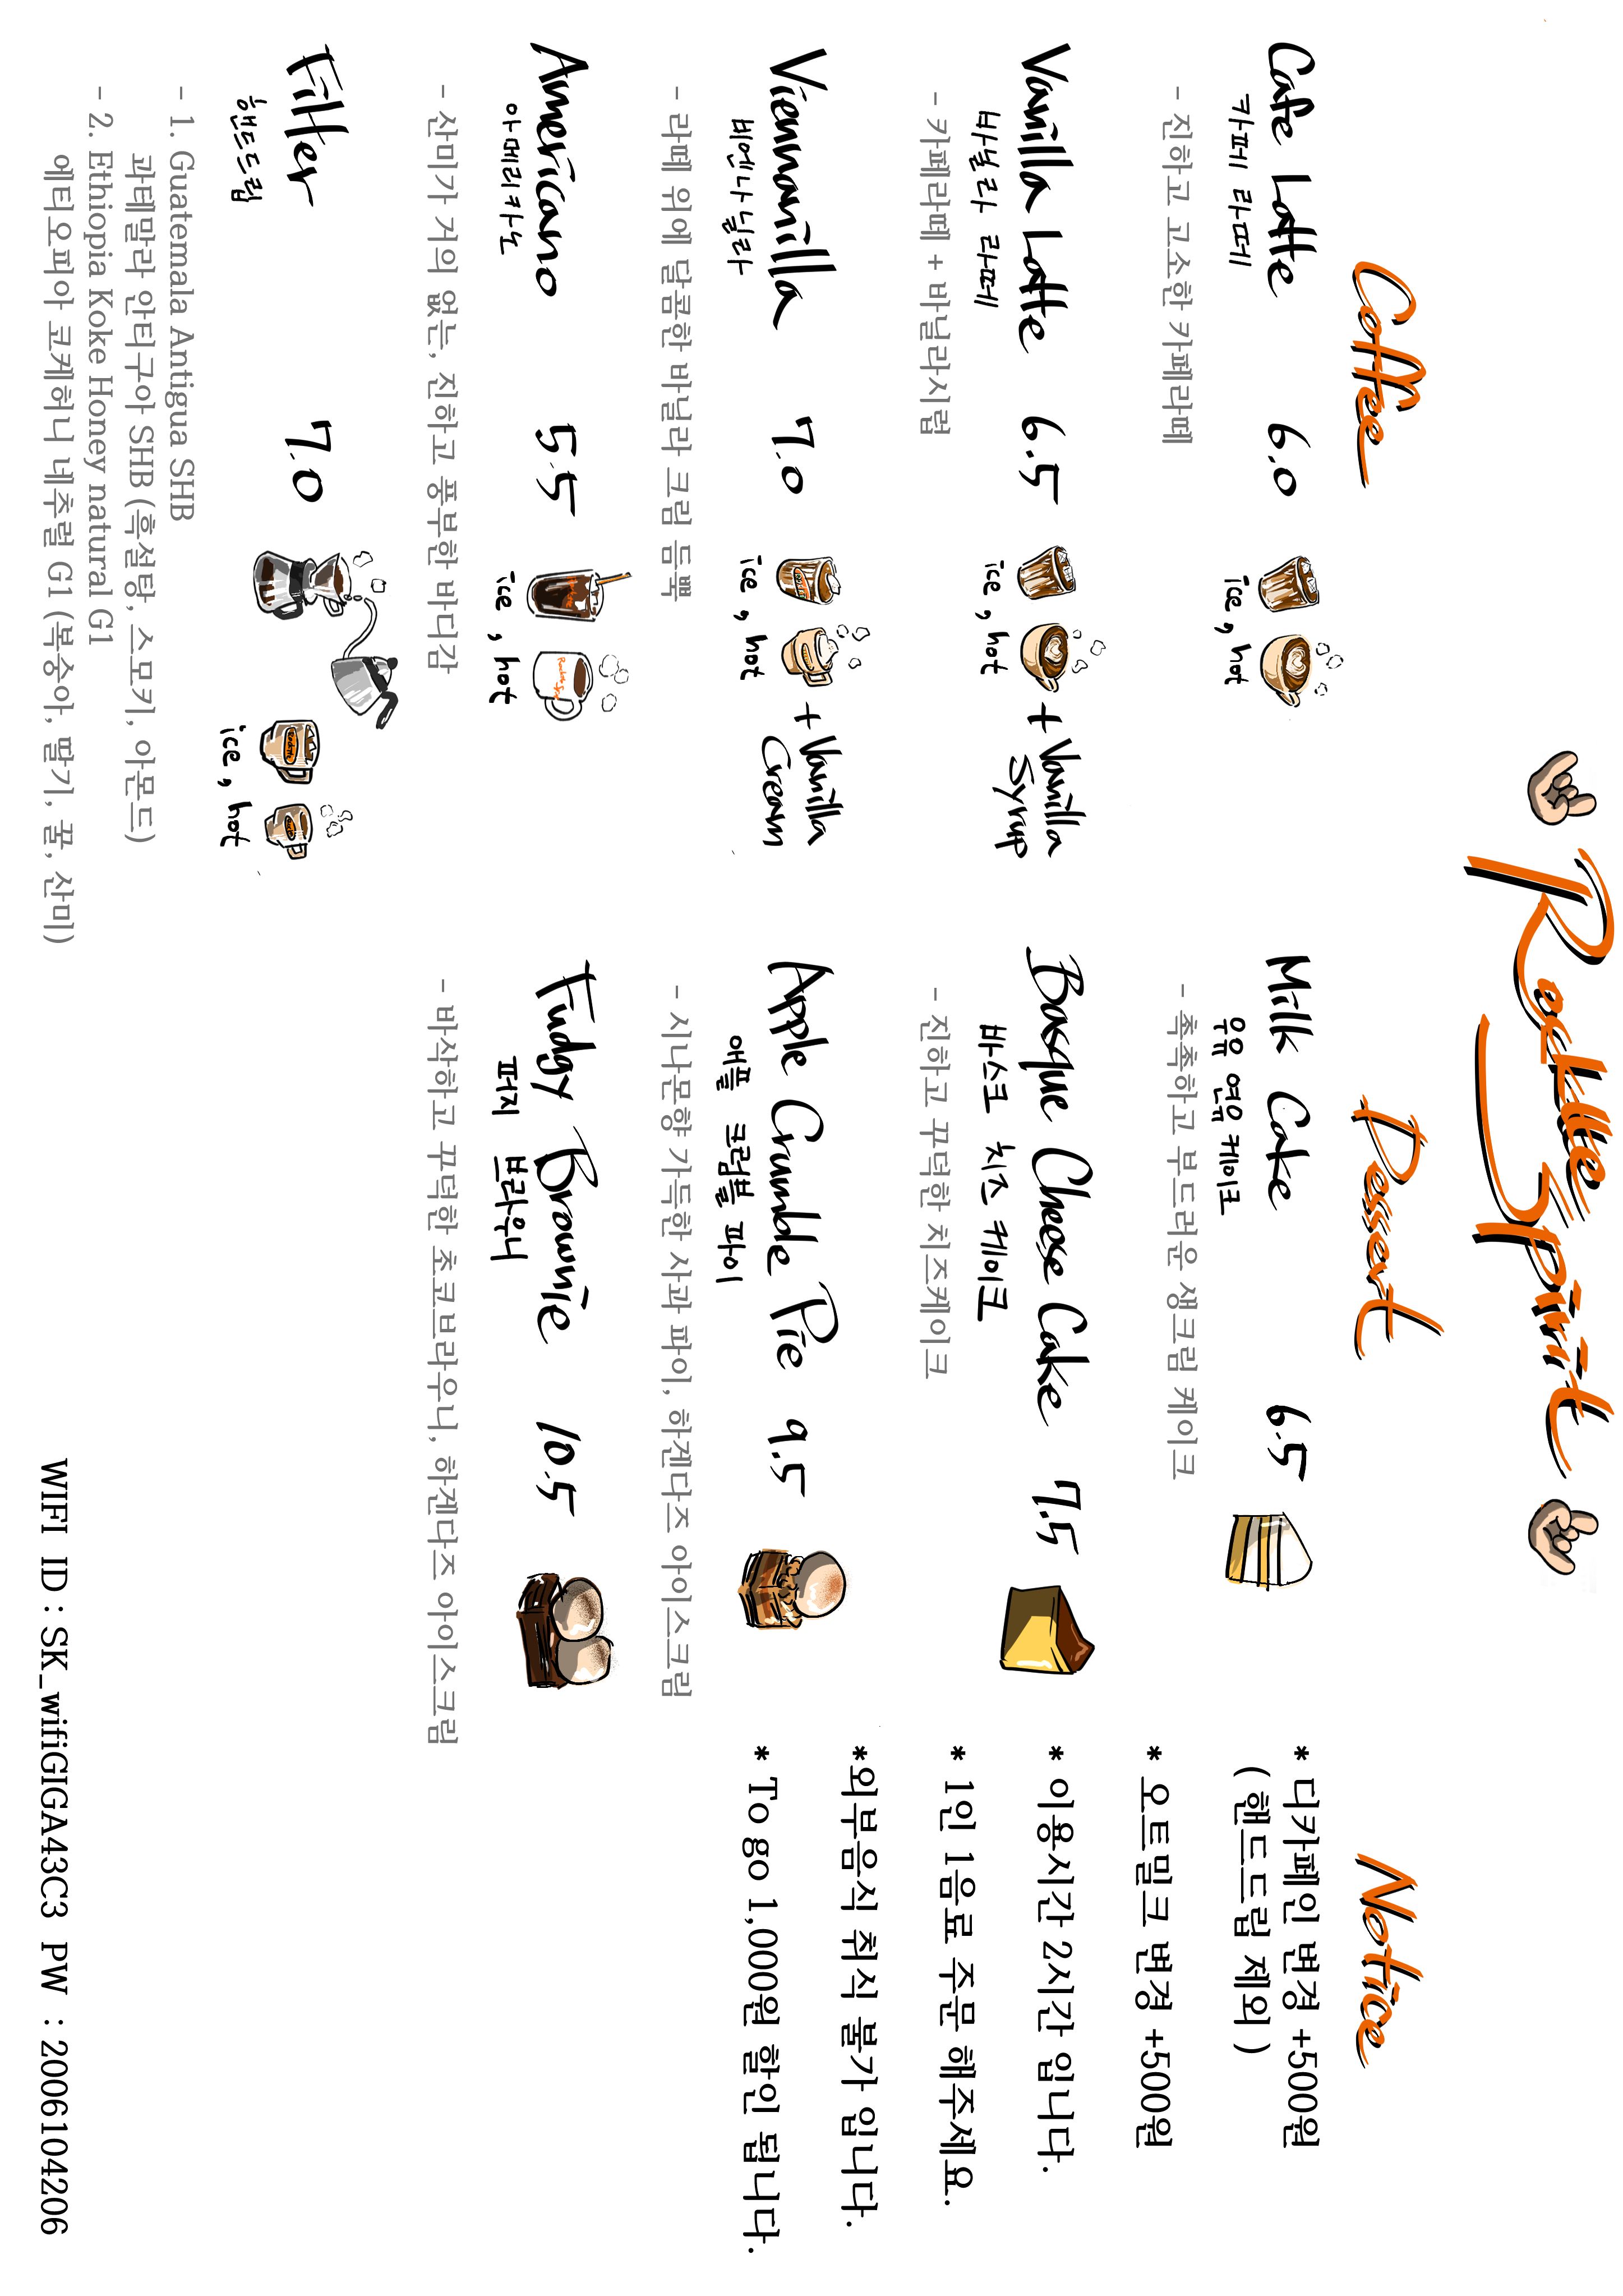 Rockette Spirit
Coffee
Cafe Latte 6.0
카페 라떼
ice, hot
- 진하고 고소한 카페라떼
Vanilla Latte 6.5
바닐라 라떼
ice, hot
+ Vanilla
Syrup
- 카페라떼 + 바닐라시럽
Viennanilla 7.0
비엔나닐라
ice, hot
+ Vanilla
Cream
- 라떼 위에 달콤한 바닐라 크림 듬뿍
Americano 5.5
아메리카노
ice, hot
- 산미가 거의 없는, 진하고 풍부한 바디감
Filter 7.0
핸드드립
ice, hot
- 1. Guatemala Antigua SHB
과테말라 안티구아 SHB (흑설탕, 스모키, 아몬드)
- 2. Ethiopia Koke Honey natural G1
에티오피아 코케허니 네추럴 G1 (복숭아, 딸기, 꿀, 산미)
Dessert
Milk Cake 6.5
우유 연유 케이크
- 촉촉하고 부드러운 생크림 케이크
Basque Cheese Cake 7.5
바스크 치즈 케이크
- 진하고 꾸덕한 치즈케이크
Apple Crumble Pie 9.5
애플 크럼블 파이
- 시나몬향 가득한 사과 파이, 하겐다즈 아이스크림
Fudgy Brownie 10.5
퍼지 브라우니
- 바삭하고 꾸덕한 초코브라우니, 하겐다즈 아이스크림
Notice
* 디카페인 변경 +500원
( 핸드드립 제외 )
* 오트밀크 변경 +500원
* 이용시간 2시간 입니다.
* 1인 1음료 주문 해주세요.
*외부음식 취식 불가 입니다.
* To go 1,000원 할인 됩니다.
WIFI ID : SK_wifiGIGA43C3 PW : 2006104206